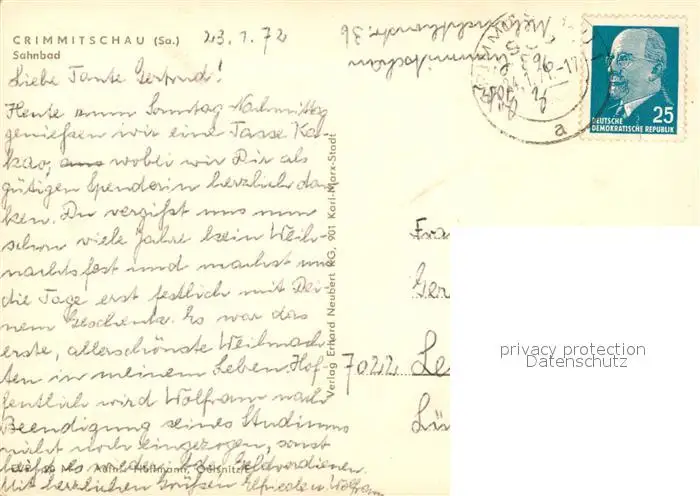 CRIMMITSCHAU (Sa.) 23.1.72
Sahnbad
Liebe Tante Gertrud!
Heute zum Sonntag-Nachmittag
genießen wir eine Tasse Ka-
kao, wobei wir Dir als
gütigen Spenderin herzlich dan-
ken. Du vergißt uns nun
schon viele Jahre kein Weih-
nachtsfest und machst uns
die Tage erst festlich mit Dei-
nem Geschenk. Es war das
erste, allerschönste Weihnach-
ten in meinem Leben. Hof-
fentlich wird Wolfram nach
Beendigung seines Studiums
nicht noch eingezogen, sonst
heißt es wieder Geldverdienen.
Mit herzlichen Grüßen Elfriede u. Wolfram
Hoffmann, Oelsnitz
Verlag Erhard Neubert KG, 901 Karl-Marx-Stadt
Crimmitschau
36
a
25
DEUTSCHE
DEMOKRATISCHE REPUBLIK
Fra
Ger
7022 Le
Lü
privacy protection
Datenschutz